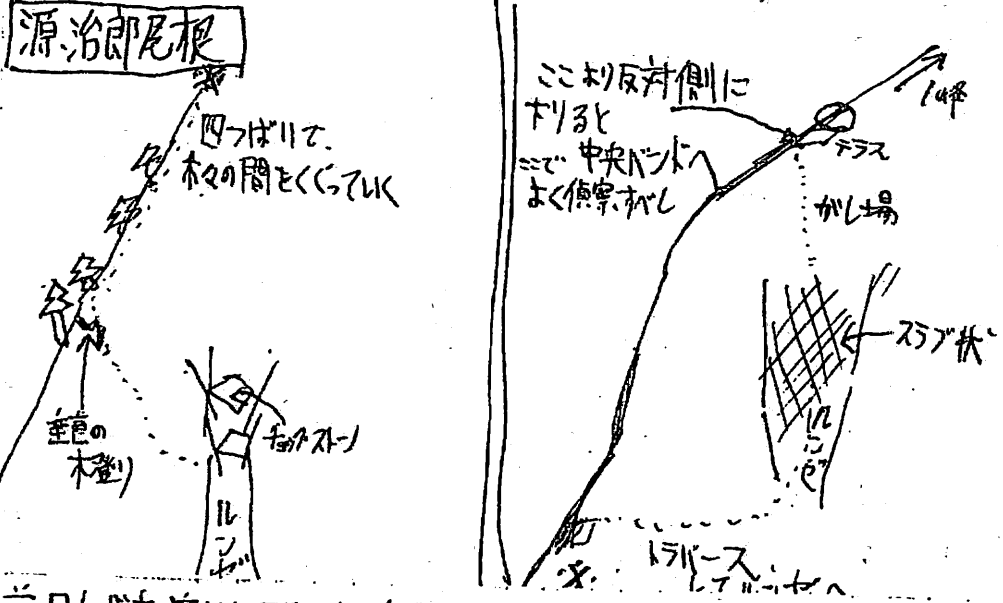 源治郎尾根
四つばいで、
木々の間をくぐっていく
木登り
チョックストーン
ルンゼ
ここより反対側に
下りると
中央バンドへ
ここで
よく偵察すべし
1峰
テラス
がし場
スラブ状
ルンゼ
トラバース
してルンゼへ